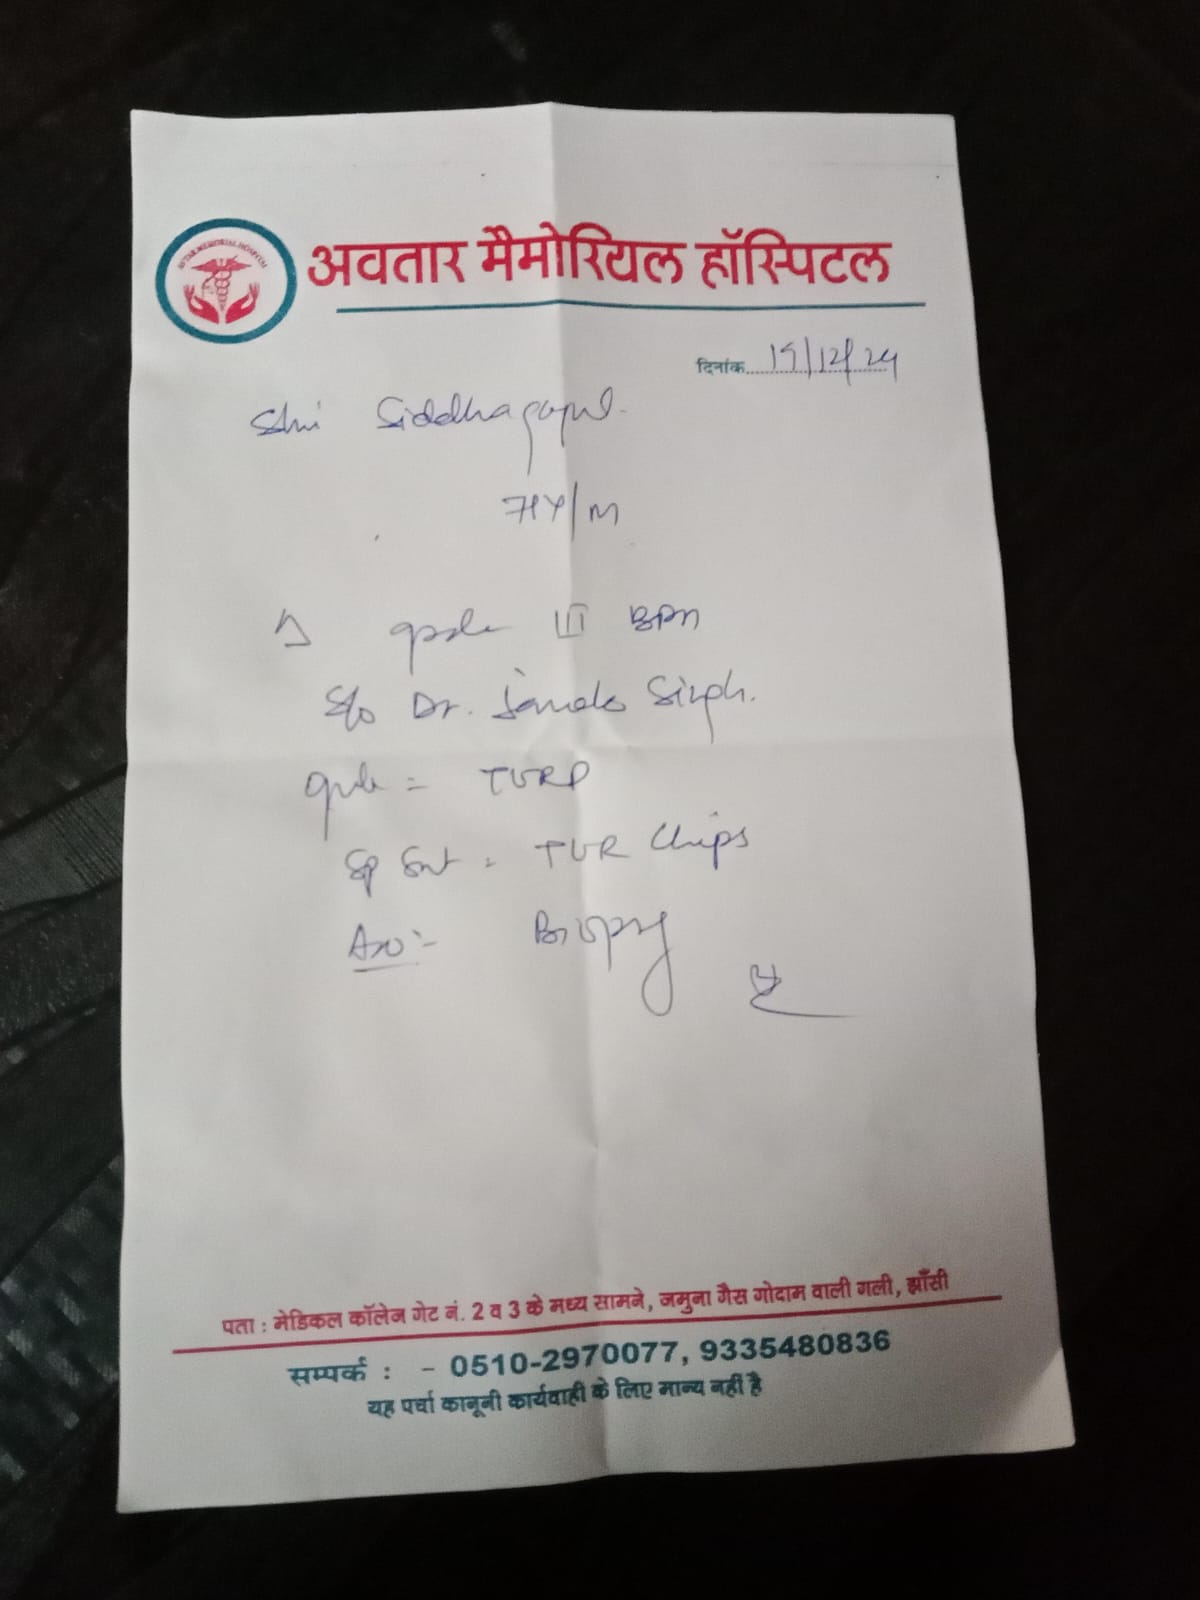 AVTAR MEMORIAL HOSPITAL
अवतार मैमोरियल हॉस्पिटल
दिनांक..... 19/12/24
Shri Siddhagopal.
/M
III BPH
S/o Dr. Singh.
= TURP
Sent = TUR Chips
Adv:- Biopsy
पता : मेडिकल कॉलेज गेट नं. 2 व 3 के मध्य सामने, जमुना गैस गोदाम वाली गली, झाँसी
सम्पर्क : - 0510-2970077, 9335480836
यह पर्चा कानूनी कार्यवाही के लिए मान्य नहीं है